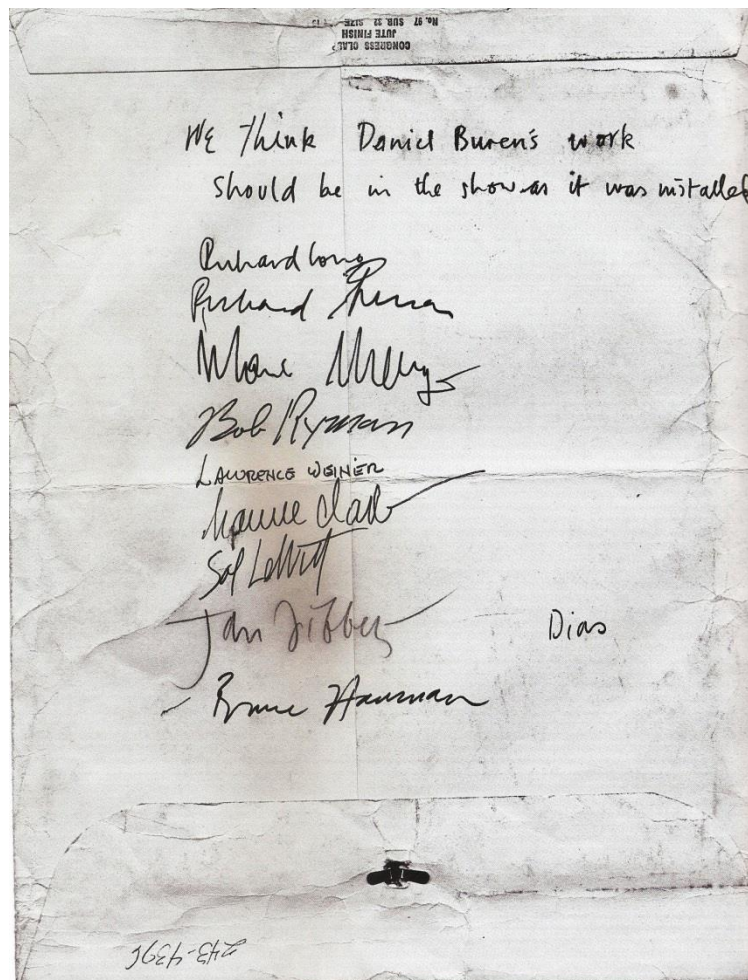 No. 97 SUB 32 SIZE
JUTE FINISH
CONGRESS
We think Daniel Buren's work
should be in the show as it was installed
Richard Long
Richard Serra
Mario Merz
Bob Ryman
LAWRENCE WEINER
Hanne Darboven
Sol LeWitt
Jan Dibbets
Dias
Bruce Nauman
243-4396